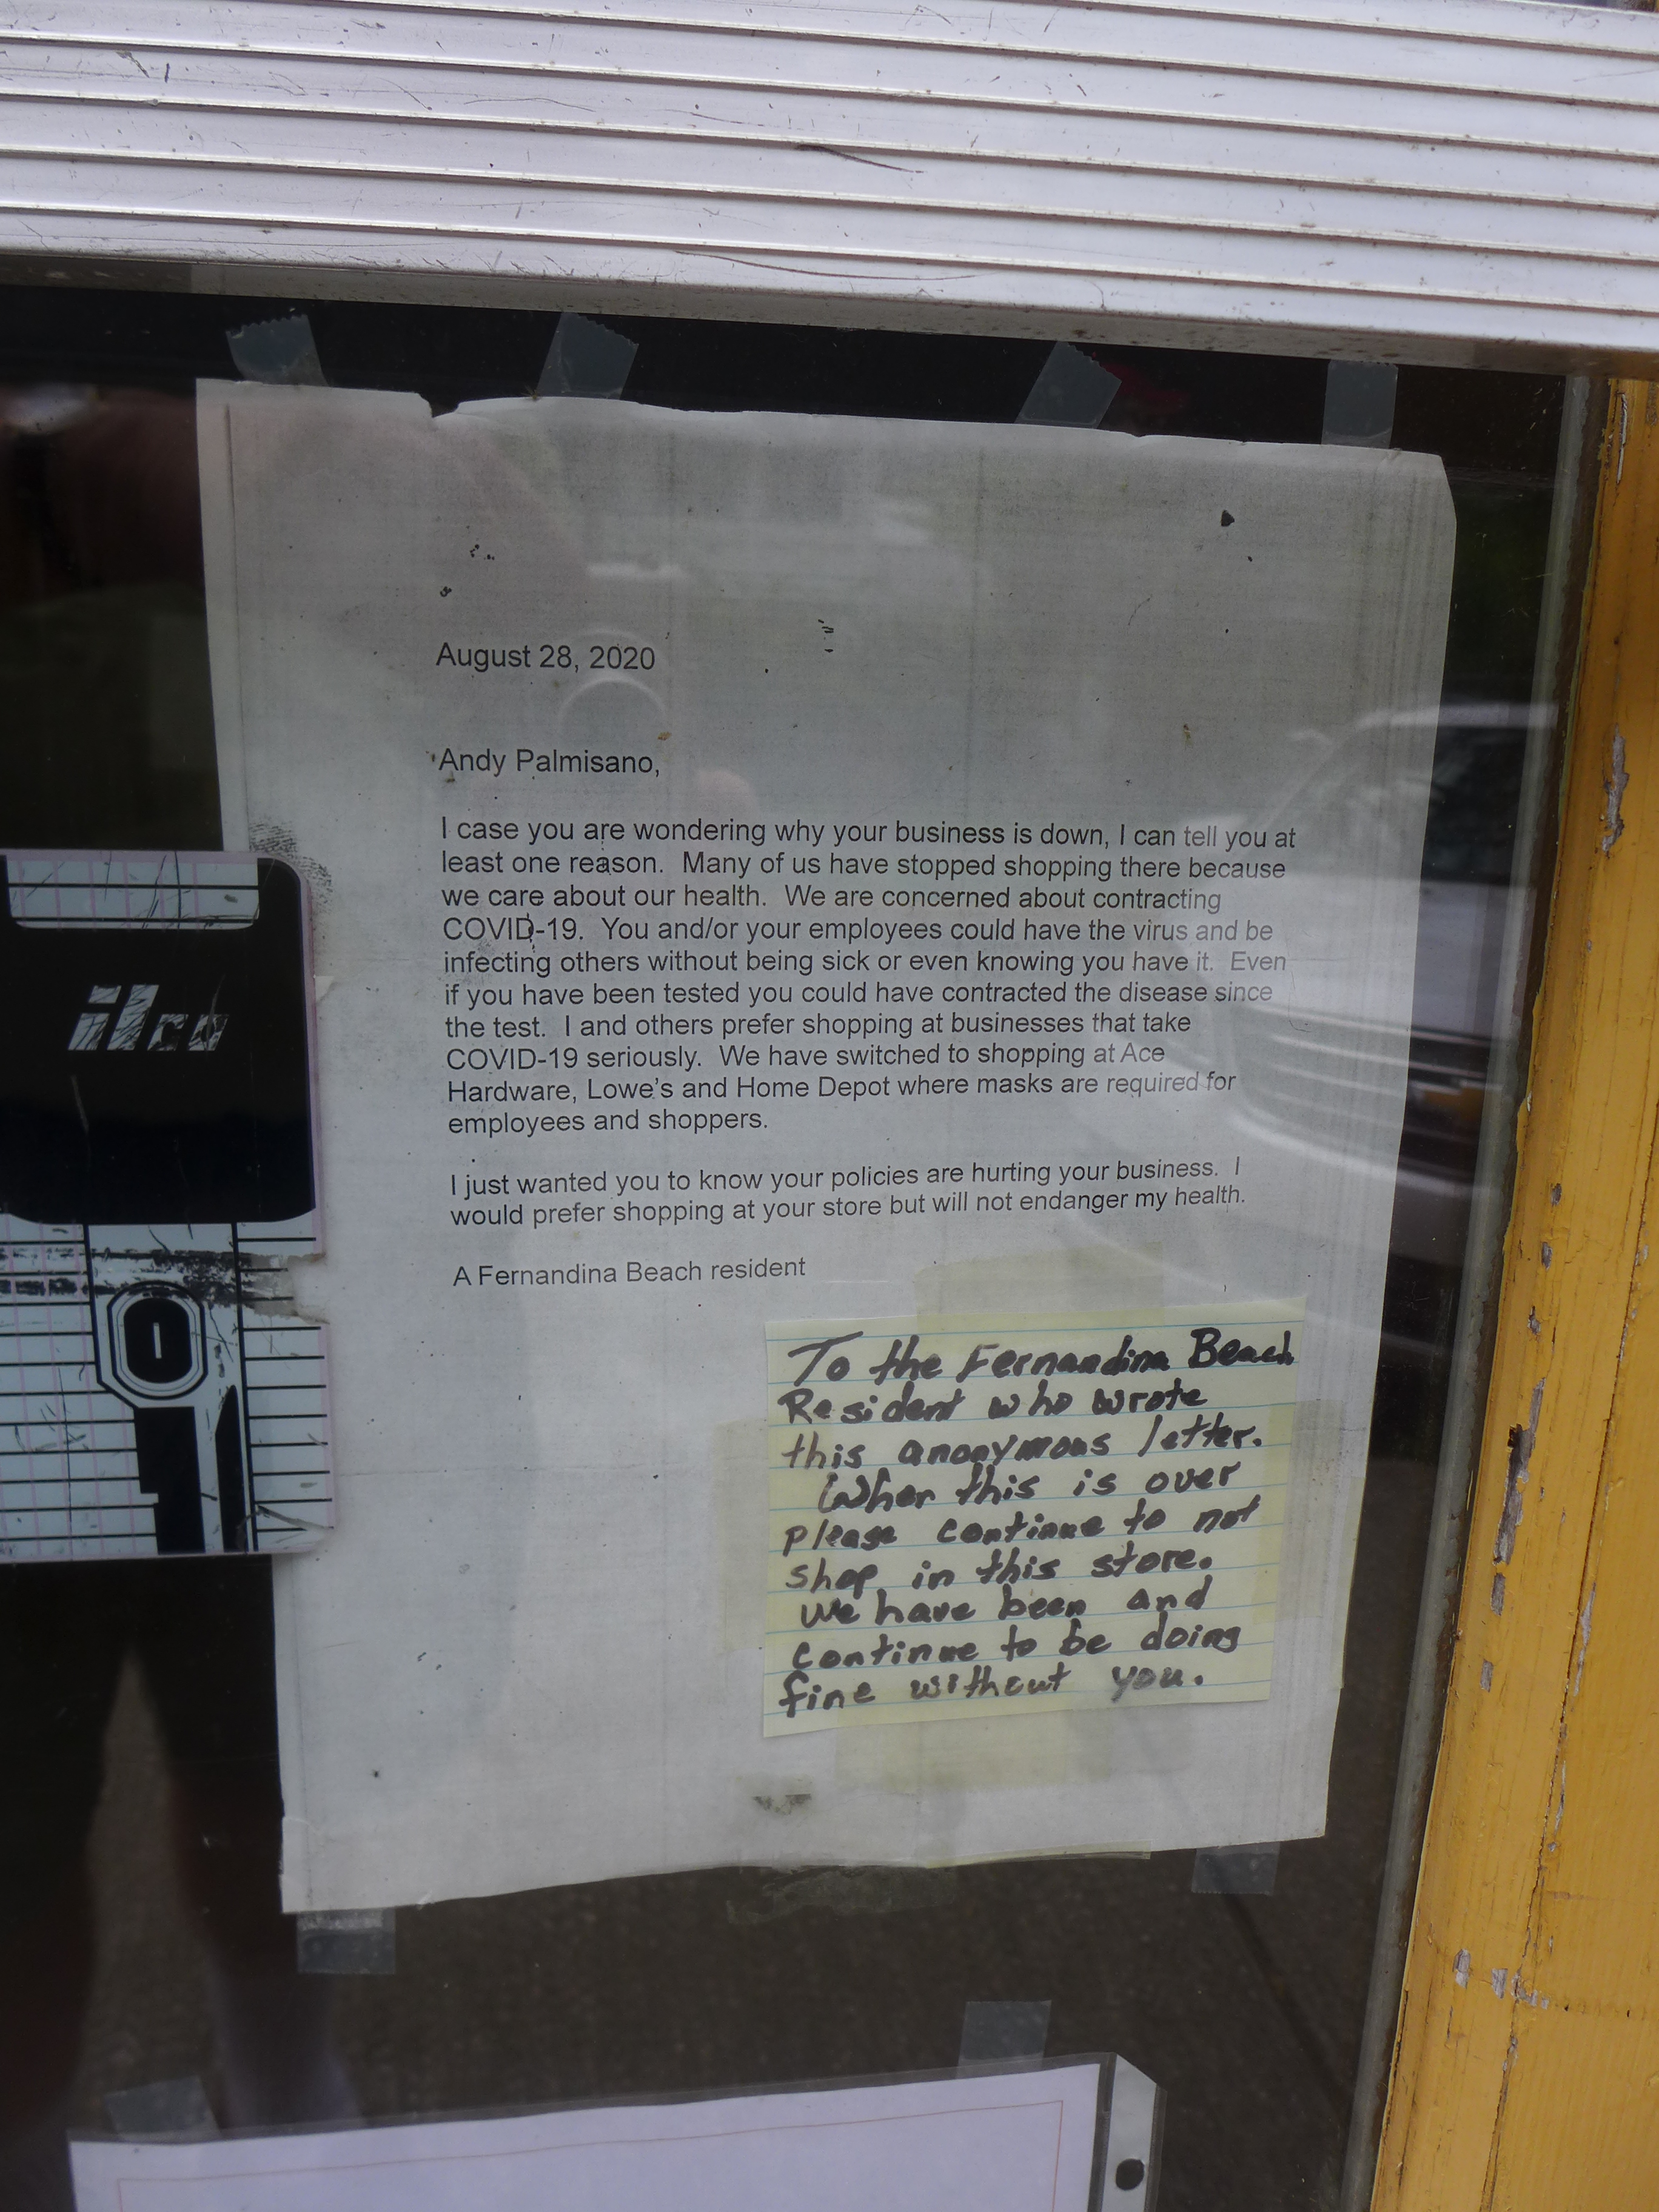 August 28, 2020
Andy Palmisano,
I case you are wondering why your business is down, I can tell you at
least one reason.  Many of us have stopped shopping there because
we care about our health.  We are concerned about contracting
COVID-19.  You and/or your employees could have the virus and be
infecting others without being sick or even knowing you have it.  Even
if you have been tested you could have contracted the disease since
the test.  I and others prefer shopping at businesses that take
COVID-19 seriously.  We have switched to shopping at Ace
Hardware, Lowe's and Home Depot where masks are required for
employees and shoppers.
I just wanted you to know your policies are hurting your business.  I
would prefer shopping at your store but will not endanger my health.
A Fernandina Beach resident
To the Fernandina Beach
Resident who wrote
this anonymous letter.
When this is over
please continue to not
shop in this store.
We have been and
continue to be doing
fine without you.
ilco